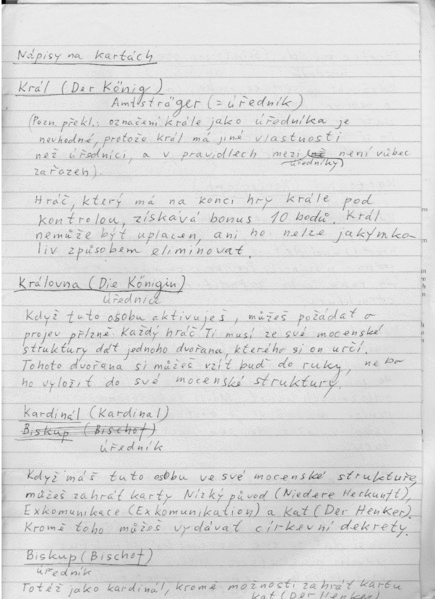 Nápisy na kartách
Král (Der König)
Amtsträger (= úředník)
(Pozn. překl.: označení krále jako úředníka je
nevhodné, protože král má jiné vlastnosti
než úředníci, a v pravidlech mezi není vůbec
úředníky
zařazen).
Hráč, který má na konci hry krále pod
kontrolou, získává bonus 10 bodů. Král
nemůže být uplacen, ani ho nelze jakýmko
liv způsobem eliminovat.
Královna (Die Königin)
Úřednice
Když tuto osobu aktivuješ, můžeš požádat o
projev přízně každý hráč Ti musí ze své mocenské
struktury dát jednoho dvořana, kterého si on určí.
Tohoto dvořana si můžeš vzít buď do ruky, nebo
ho vyložit do své mocenské struktury.
Kardinál (Kardinal)
Biskup (Bischof)
úředník
Když máš tuto osobu ve své mocenské struktuře,
můžeš zahrát karty Nízký původ (Niedere Herkunft),
Exkomunikace (Exkomunikation) a Kat (Der Henker).
Kromě toho můžeš vydávat církevní dekrety.
Biskup (Bischof)
úředník
Totéž jako kardinál, kromě možnosti zahrát kartu
Kat (Der Henker)